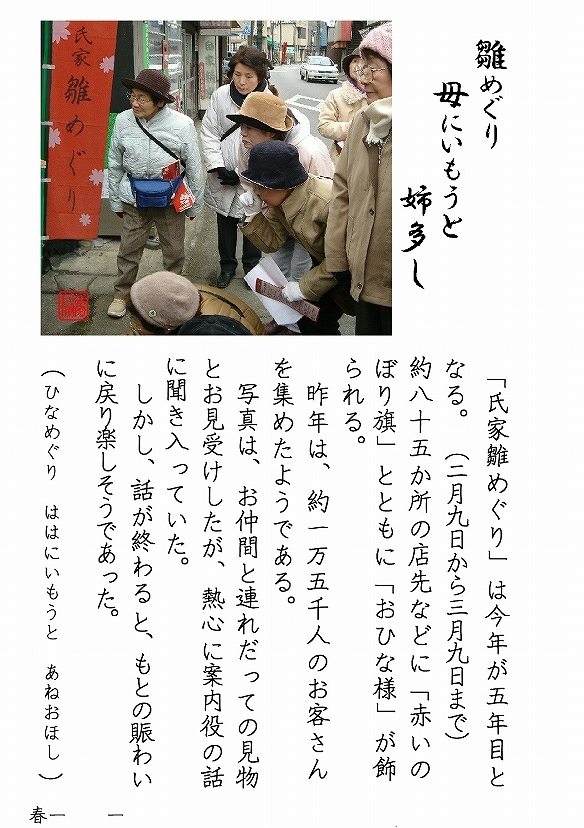 雛めぐり
母にいもうと
姉多し
氏家雛めぐり
「氏家雛めぐり」は今年が五年目と
なる。　(二月九日から三月九日まで)
約八十五か所の店先などに「赤いの
ぼり旗」とともに「おひな様」が飾
られる。
昨年は、約一万五千人のお客さん
を集めたようである。
写真は、お仲間と連れだっての見物
とお見受けしたが、熱心に案内役の話
に聞き入っていた。
しかし、話が終わると、もとの賑わい
に戻り楽しそうであった。
(ひなめぐり　ははにいもうと　あねおほし)
春一　一